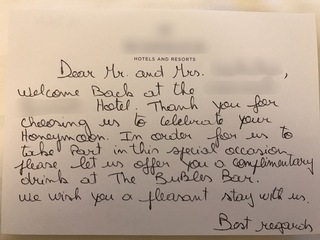 HOTELS AND RESORTS
Dear Mr. and Mrs. ,
Welcome Back at the
Hotel. Thank you for
choosing us to celebrate your
Honeymoon. In order for us to
take Part in this special occasion
please let us offer you a complimentary
drink at The BuBBles Bar.
We wish you a pleasant stay with us.
Best regards